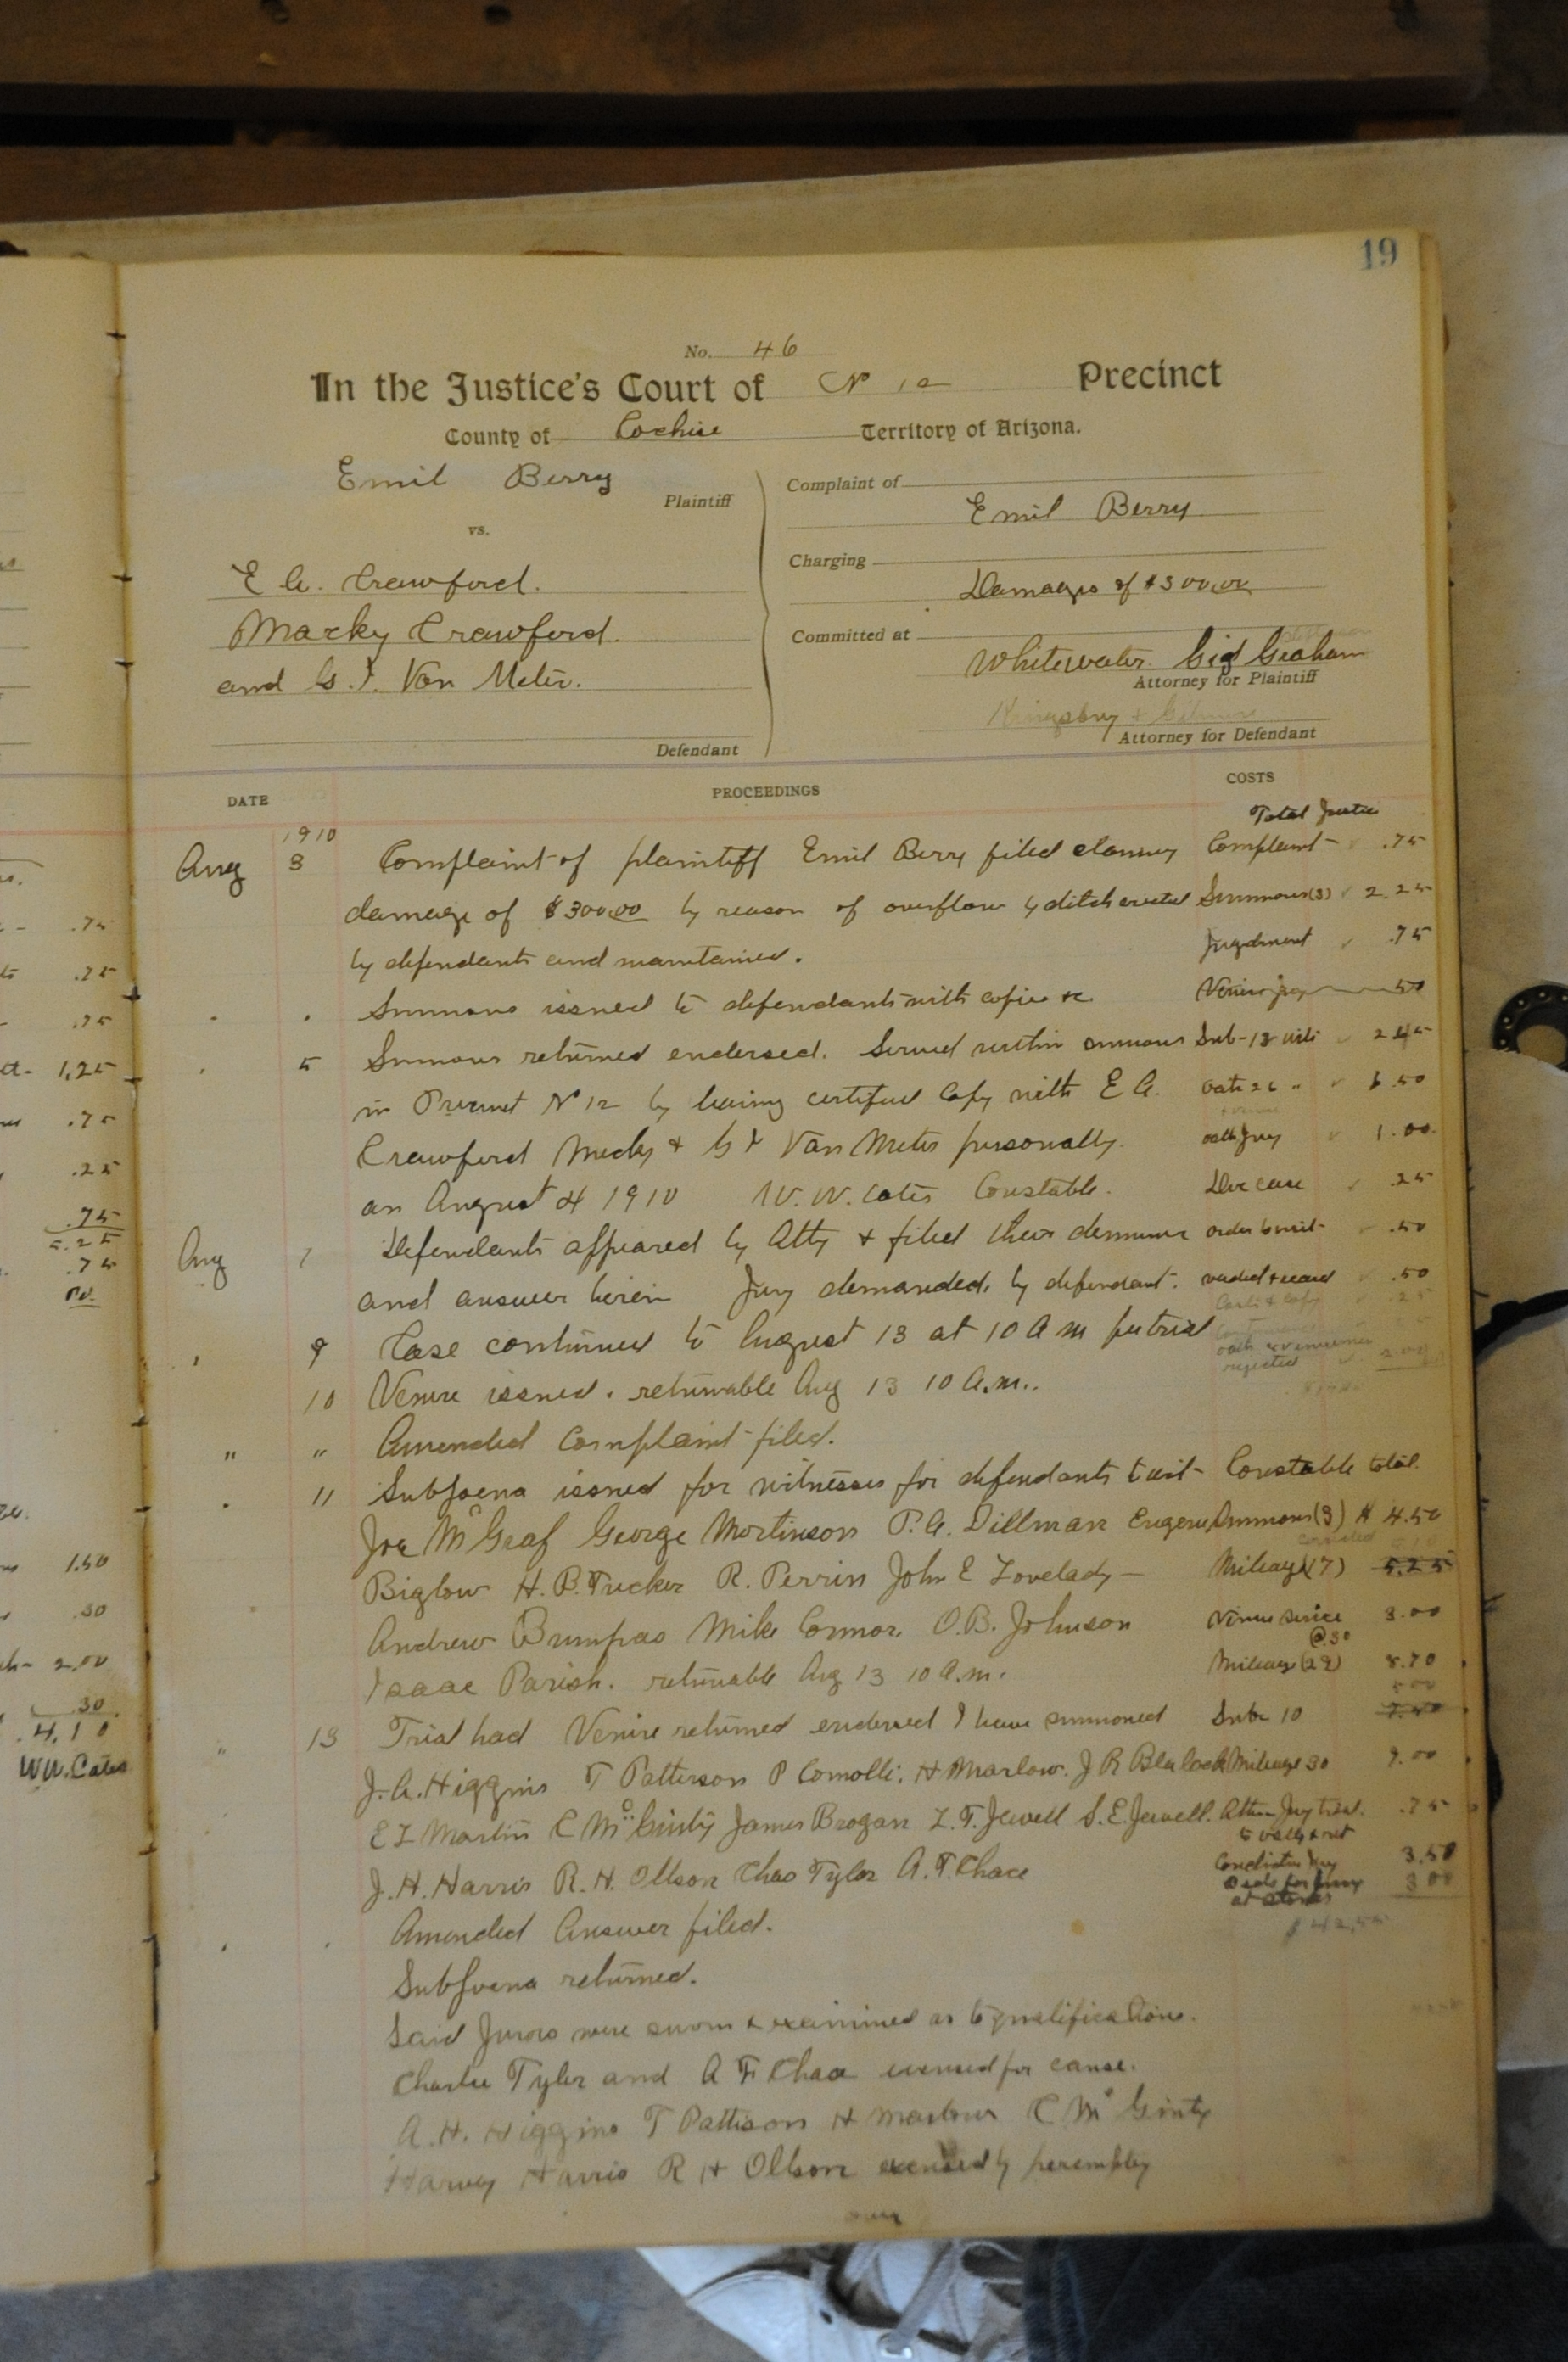 19
No. 46
In the Justice's Court of No 12 Precinct
County of Cochise Territory of Arizona.
Emil Berry
Plaintiff
vs.
E A. Crawford.
Macky Crawford.
and G. Van Meter.
Defendant
Complaint of
Emil Berry
Charging
Damages of $300.00
Committed at
Whitewater. Sid Graham
Attorney for Plaintiff
Kingsbury + Gilmore
Attorney for Defendant
DATE PROCEEDINGS COSTS
1910 Total Justice
Aug 3 Complaint of plaintiff Emil Berry filed claiming Complaint - .75
damage of $300.00 by reason of overflow by ditch erected Summons (3) 2.25
by defendants and maintained. Judgment .75
Summons issued to defendants with copies &c Venire jury 50
5 Summons returned endorsed. Served within summons Sub-13 wit
in Precinct No 12 by leaving certified copy with E A. oath 26 " 6 50
Crawford Macky & G Van Meter personally. oath Jury 1.00.
on August 4 1910 W. W. Cates Constable. Doc case .25
Aug 7 Defendants appeared by Atty & filed their demurrer order to wit .50
and answer herein Jury demanded by defendant. verdict & record .50
9 Case continued to August 13 at 10 A m for trial
rejected
10 Venire issued. returnable Aug 13 10 A.m..
" " Amended Complaint filed.
11 Subpoena issued for witnesses for defendants to wit - Constable total.
Joe McGraf George Mortinson P. A. Dillman Eugene Summons (3) $ 4.50
Biglow H. B. Tucker R. Perrin John E Lovelady - Mileage (7) 5.25
Andrew Bumpas Mike Connor O.B. Johnson Venire Service 3.00
@.30
Isaac Parish. returnable Aug 13 10 A.m. Mileage (29) 8.70
13 Trial had Venire returned endorsed I have summoned Sub 10
J. A. Higgins T Patterson P Comolli. H Marlow. J R Blalock Mileage 30 9.00
E L Martin C McGinty James Brogan L. F. Jewell S. E. Jewell. Atten Jury trial. .75
J. H. Harris R. H. Ollson Chas Tyler A. F. Chace Jury 3.50
3 00
Amended Answer filed. $ 42.55
Subpoena returned.
Said Jurors were sworn & examined as to qualifications.
Charlie Tyler and A F Chace excused for cause.
A. H. Higgins T Pattison H Marlow C McGinty
Harvey Harris R H Ollson excused by peremptory
over
.75
.75
.75
1.25
.75
.25
.75
5.25
.75
pd.
1.50
.30
2.00
.30
4.10
W W. Cates